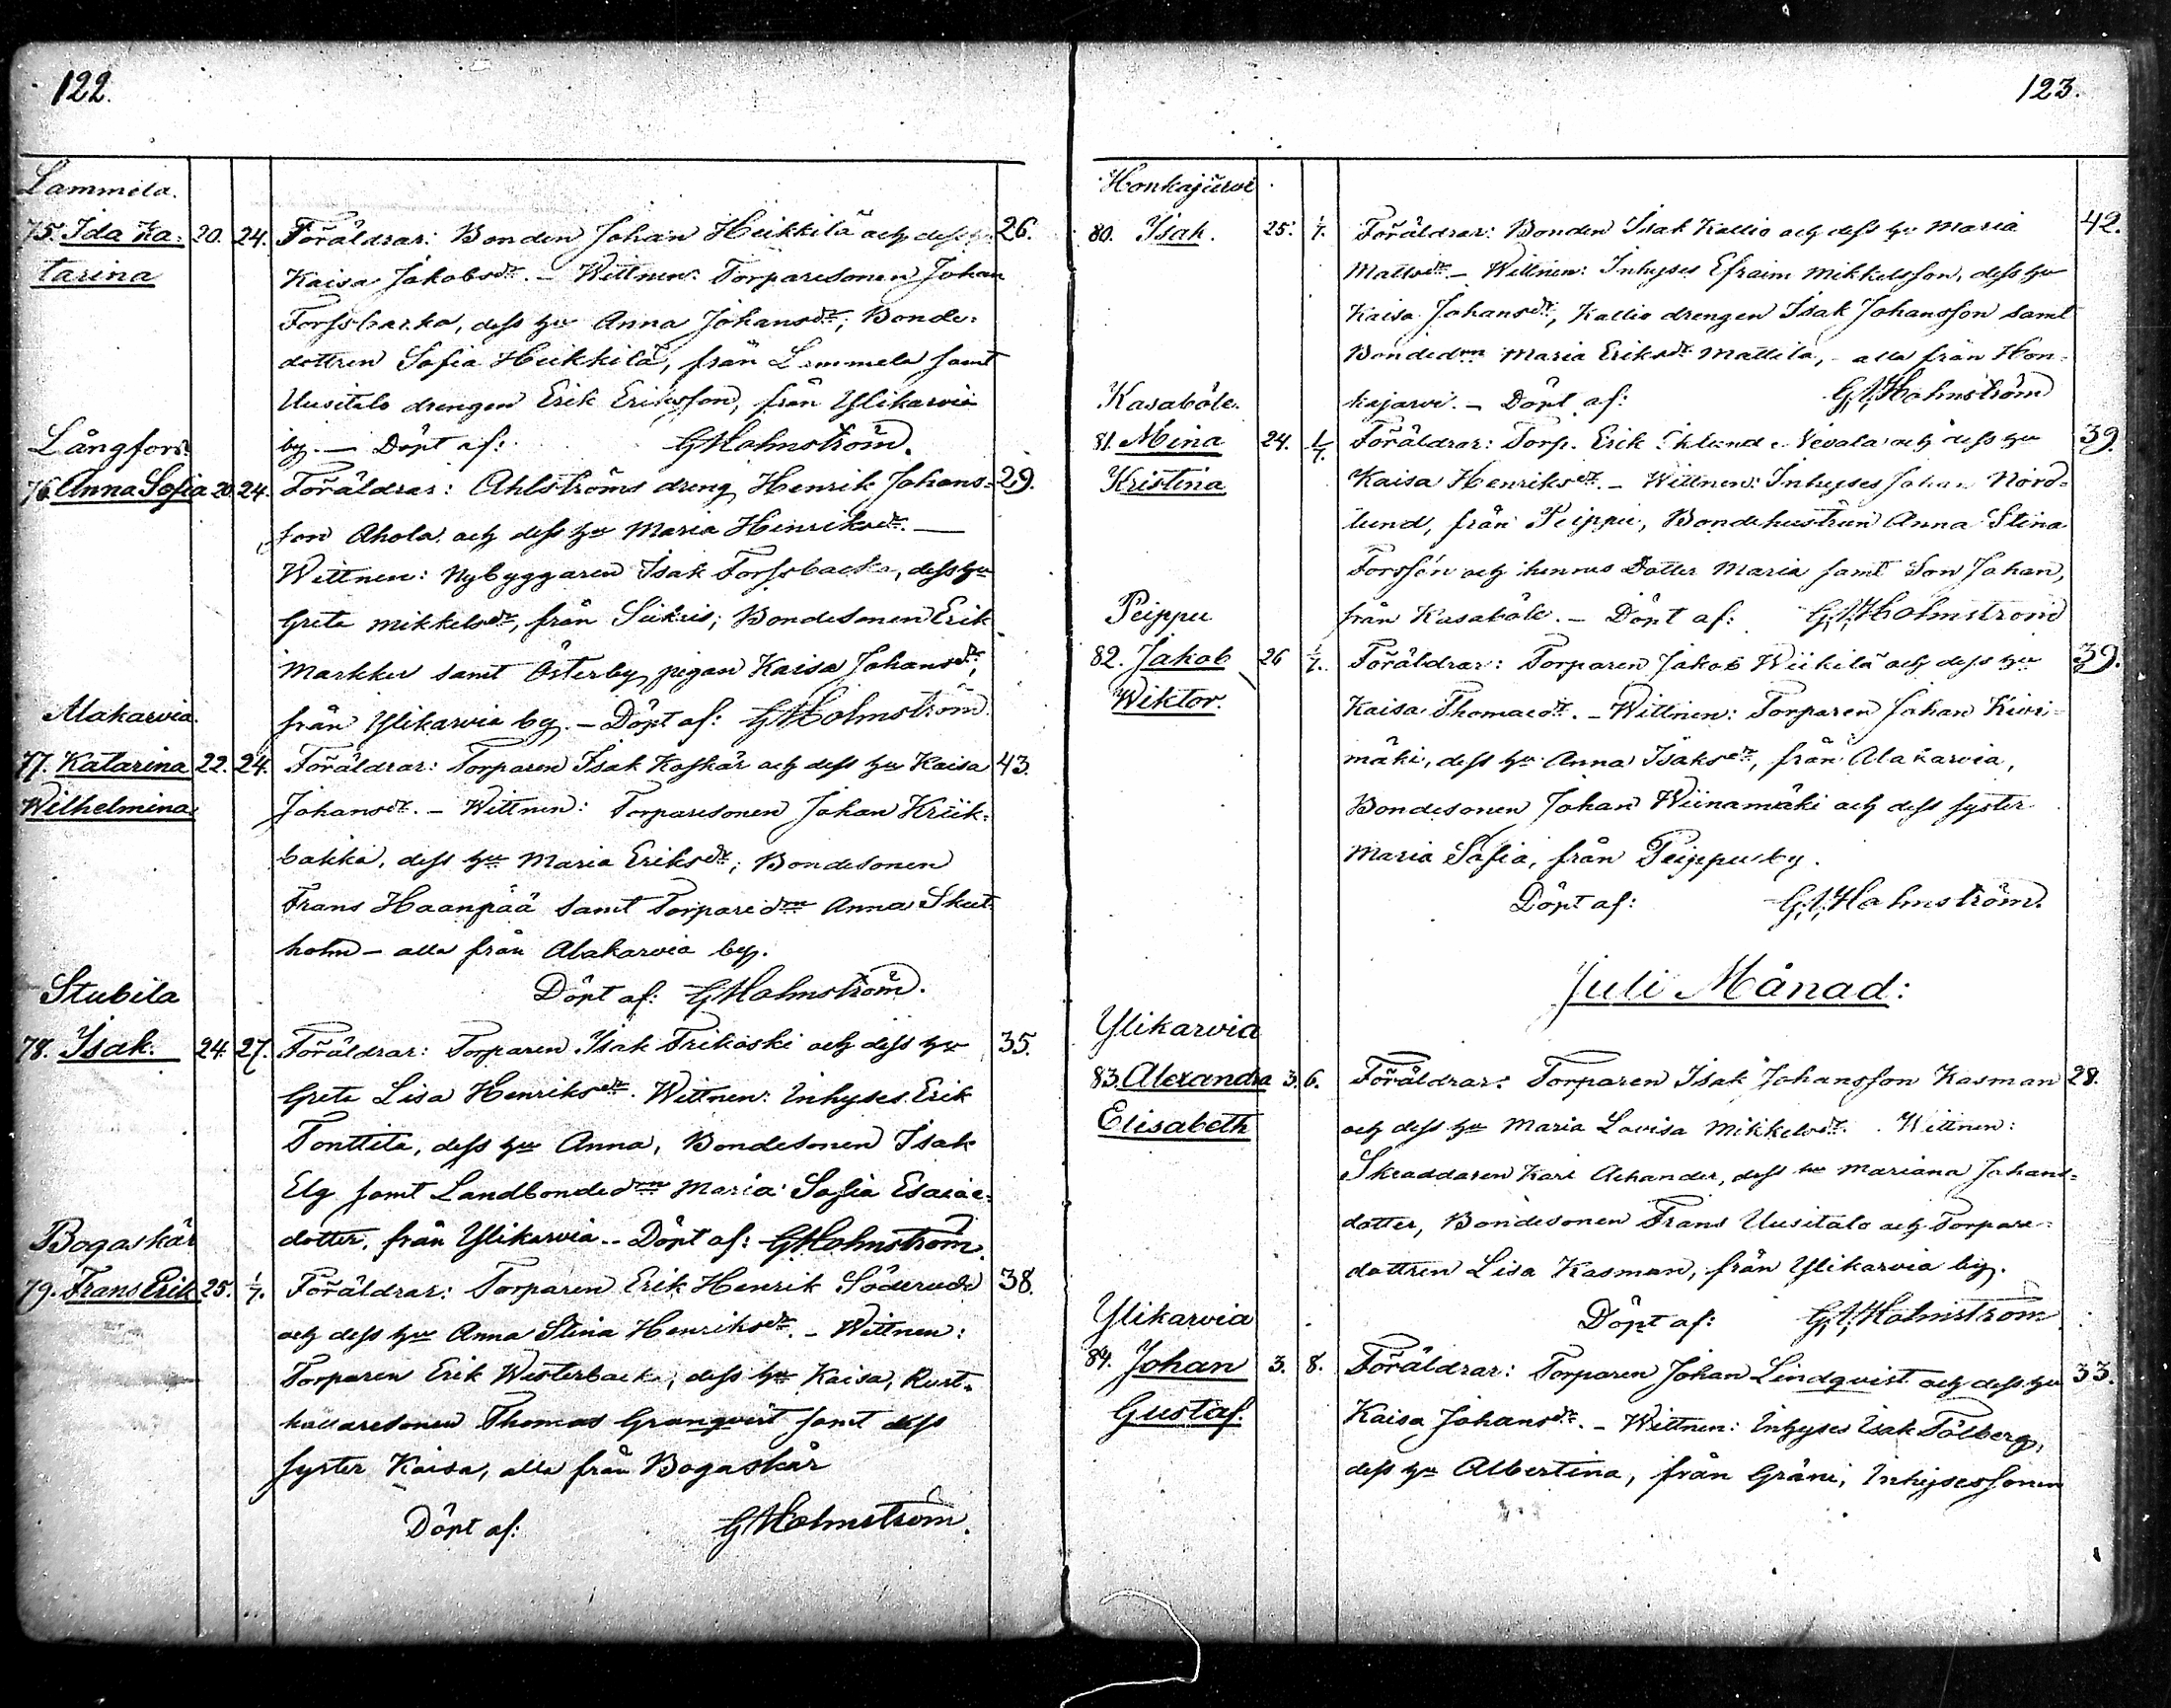 122.
Lammela.
75. Ida Ka- 20. 24. Föräldrar: Bonden Johan Heikkilä och dess hu 26.
tarina Kaisa Jakobsdr. – Wittnen: Torparesonen Johan
Forssbacka, dess hu Anna Johansdr, Bonde-
dottren Sofia Heikkilä, från Lammela samt
Uusitalo drengen Erik Eriksson, från Ylikarvia
Långfors by. – Döpt af: GHolmström.
76. Anna Sofia 20. 24. Föräldrar: Ahlströms dreng Henrik Johans- 29.
son Ahola och dess hu Maria Henriksdr. –
Wittnen: Nybyggaren Isak Forssbacka, dess hu
Greta Mikkelsdr, från Siikeis; Bondesonen Erik
Markku samt Österby pigan Kaisa Johansdr,
Alakarvia. från Ylikarvia by. – Döpt af: GHolmström
77. Katarina 22. 24. Föräldrar: Torparen Isak Koskär och dess hu Kaisa 43.
Wilhelmina Johansdr. – Wittnen: Torparesonen Johan Kriik-
bakka, dess hu Maria Eriksdr; Bondesonen
Frans Haanpää samt Torparedrn Anna Skut-
holm – alla från Alakarvia by.
Stubila Döpt af: GHolmström.
78. Isak. 24. 27. Föräldrar: Torparen Isak Frikoski och dess hu 35.
Greta Lisa Henriksdr. Wittnen: Inhyses Erik
Tonttila, dess hu Anna, Bondesonen Isak
Elg samt Landbondedrn Maria Sofia Esaiæ-
Bogaskär dotter, från Ylikarvia. – Döpt af: GHolmström.
79. Frans Erik 25. 1/7. Föräldrar: Torparen Erik Henrik Söderudd 38.
och dess hu Anna Stina Henriksdr. – Wittnen:
Torparen Erik Westerbacka, dess hu Kaisa, Rust-
hållaresonen Thomas Granqvist samt dess
syster Kaisa, alla från Bogaskär
Döpt af: GHolmström.
123.
Honkajärvi
80. Isak. 25. 1/7. Föräldrar: Bonden Isak Kallio och dess hu Maria 42.
Mattsdr. – Wittnen: Inhyses Efraim Mikkelsson, dess hu
Kaisa Johansdr, Kallio drengen Isak Johansson samt
Bondedrn Maria Eriksdr Mattila, – alla från Hon-
Kasaböle. kajarvi. – Döpt af: GHolmström
81. Mina 24. 1/7. Föräldrar: Torp. Erik Eklund Nevala och dess hu 39.
Kristina Kaisa Henriksdr. – Wittnen: Inhyses Johan Nord-
lund, från Peippu, Bondehustrun Anna Stina
Forssén och hennes Dotter Maria samt Son Johan,
Peippu från Kasaböle. – Döpt af: GHolmström
82. Jakob 26 1/7. Föräldrar: Torparen Jakob Wiikilä och dess hu 39.
Wiktor. Kaisa Thomaedr. – Wittnen: Torparen Johan Kivi-
mäki, dess hu Anna Isaksdr, från Alakarvia,
Bondesonen Johan Wiinamäki och dess syster
Maria Sofia, från Peippu by.
Döpt af: GHolmström.
Juli Månad:
Ylikarvia
83. Alexandra 3. 6. Föräldrar: Torparen Isak Johansson Kasman 28.
Elisabeth och dess hu Maria Lovisa Mikkelsdr. Wittnen:
Skraddaren Karl Achander, dess hu Mariana Johans-
dotter, Bondesonen Frans Uusitalo och Torpare-
dottren Lisa Kasman, från Ylikarvia by.
Ylikarvia Döpt af: GHolmström
84. Johan 3. 8. Föräldrar: Torparen Johan Lindqvist och dess hu 33.
Gustaf. Kaisa Johansdr. – Wittnen: Inhyses Isak Tölberg,
dess hu Albertina, från Gräni, Inhysessonen